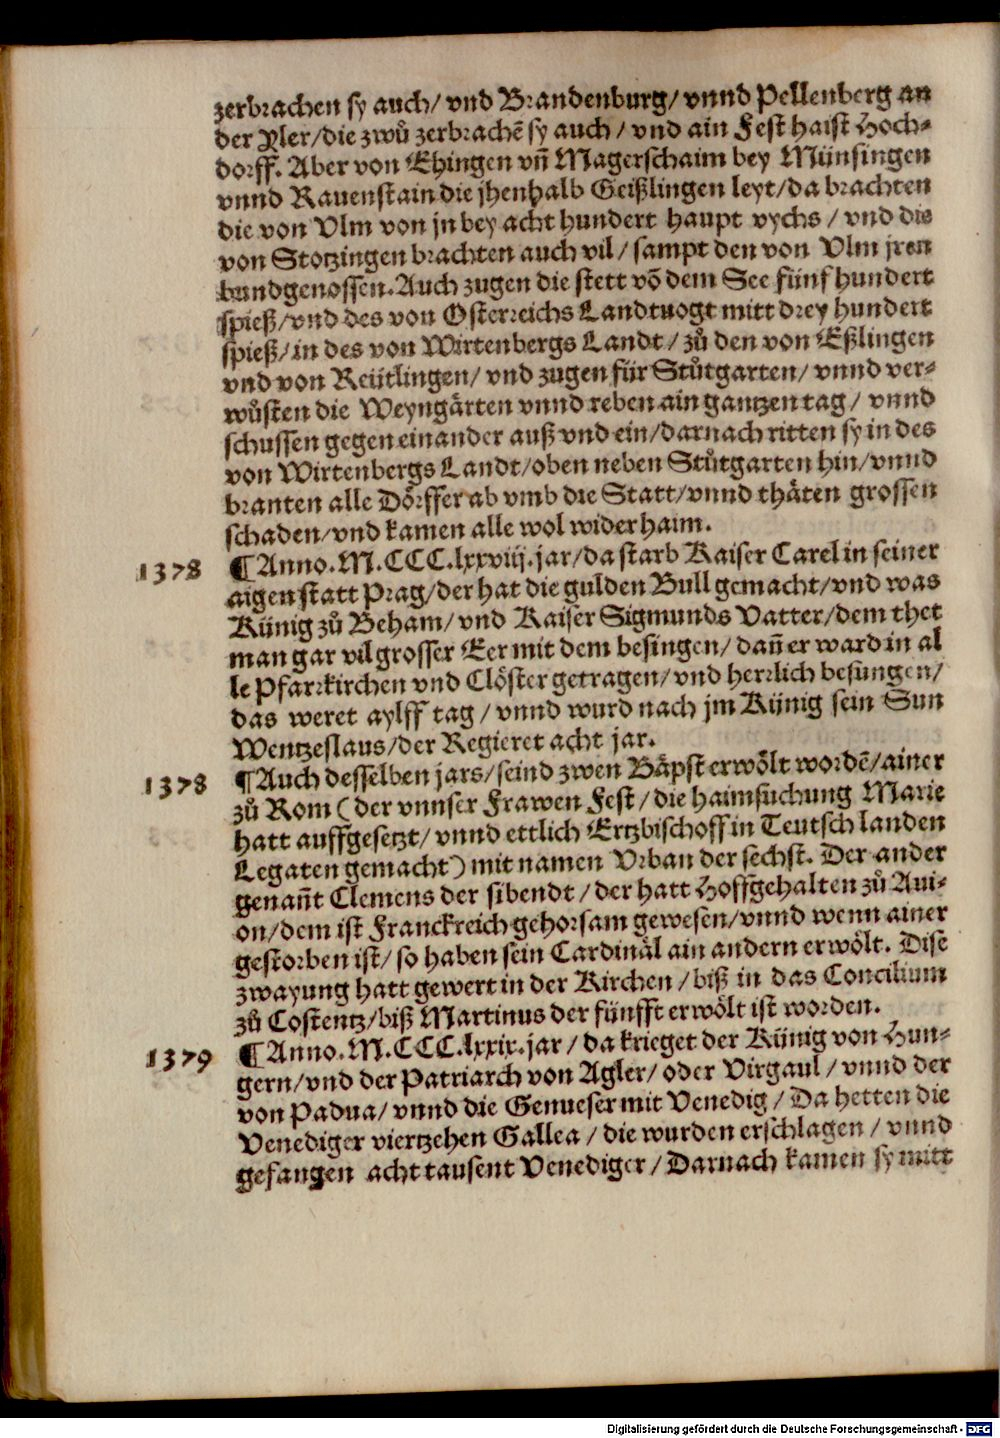 zerbrachen sy auch/ vnd Brandenburg/ vnnd Pellenberg an
der Yler/die zwů zerbrachē sy auch / vnd ain Fest haist Hoch⸗
dorff. Aber von Ehingen vñ Magerschaim bey Münsingen
vnnd Rauenstain die jhenhalb Geißlingen leyt/da brachten
die von Vlm von jn bey acht hundert haupt vychs / vnd die
von Stotzingen brachten auch vil/ sampt den von Vlm jren
bundgenossen. Auch zugen die stett võ dem See fünf hundert
spieß/vnd des von Osterreichs Landtuogt mitt drey hundert
spieß/in des von Wirtenbergs Landt/ zů den von Eßlingen
vnd von Reütlingen/ vnd zugen für Stůtgarten/ vnnd ver⸗
wůsten die Weyngärten vnnd reben ain gantzen tag/ vnnd
schussen gegen einander auß vnd ein/darnach ritten sy in des
von Wirtenbergs Landt/oben neben Stůtgarten hin/vnnd
branten alle Dörffer ab vmb die Statt/vnnd thäten grossen
schaden/vnd kamen alle wol wider haim.
1378 ¶ Anno. M. CCC. lxxviij. jar/da starb Kaiser Carel in seiner
aigen statt Prag/der hat die gulden Bull gemacht/vnd was
Künig zů Beham/ vnd Kaiser Sigmunds Vatter/dem thet
man gar vil grosser Eer mit dem besingen/ dañ er ward in al
le Pfarrkirchen vnd Clöster getragen/ vnd herrlich besungen/
das weret aylff tag / vnnd wurd nach jm Künig sein Sun
Wentzeslaus/der Regieret acht jar.
1378 ¶ Auch desselben jars/seind zwen Bäpst erwölt wordē/ainer
zů Rom (der vnnser Frawen Fest / die haimsuchung Marie
hatt auffgesetzt/ vnnd ettlich Ertzbischoff in Teutsch landen
Legaten gemacht) mit namen Vrban der sechst. Der ander
genañt Clemens der sibendt / der hatt Hoffgehalten zů Aui⸗
on/dem ist Franckreich gehorsam gewesen/vnnd wenn ainer
gestorben ist/ so haben sein Cardinäl ain andern erwölt. Dise
zwayung hatt gewert in der Kirchen / biß in das Concilium
zů Costentz/biß Martinus der fünfft erwölt ist worden.
1379 ¶ Anno. M. CCC. lxxix. jar / da krieget der Künig von Hun⸗
gern/vnd der Patriarch von Agler/ oder Virgaul / vnnd der
von Padua/ vnnd die Genueser mit Venedig / Da hetten die
Venediger viertzehen Gallea / die wurden erschlagen / vnnd
gefangen acht tausent Venediger / Darnach kamen sy mitt
Digitalisierung gefördert durch die Deutsche Forschungsgemeinschaft - DFG